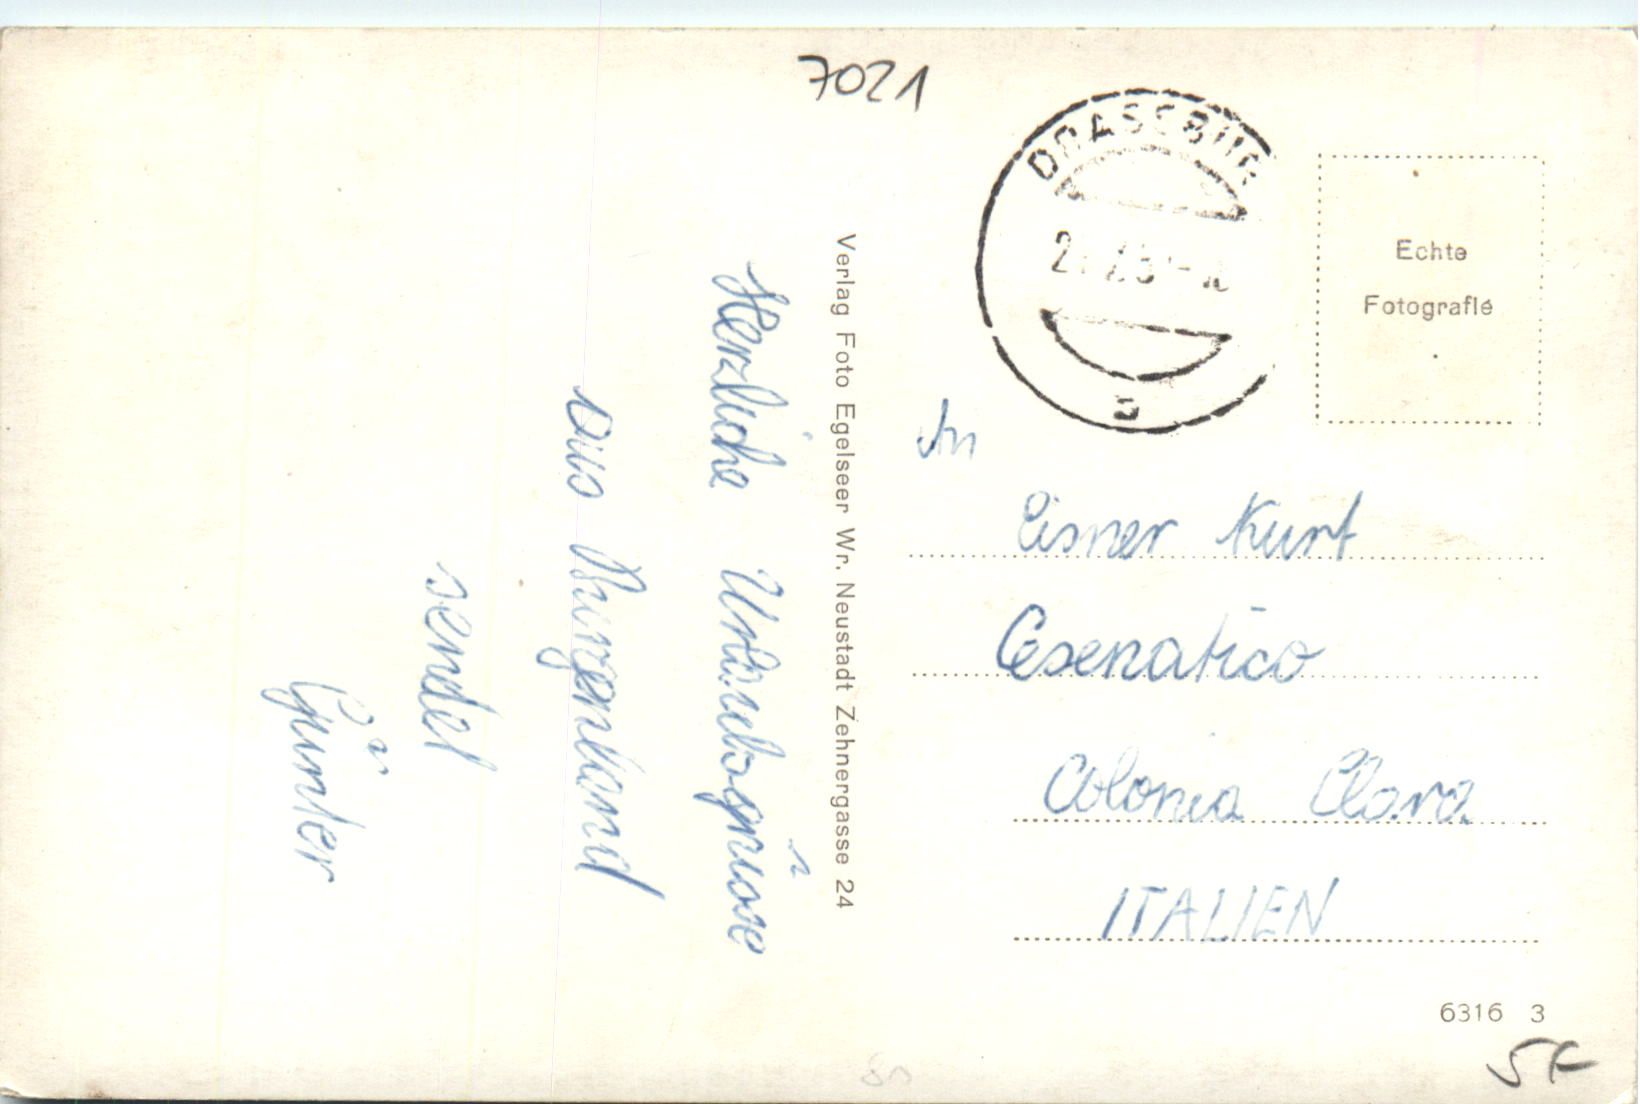 7021
DRASSBURG
Echte
Fotografie
An
Eisner Kurt
Cesenatico
Colonia Clara
ITALIEN
6316 3
Verlag Foto Egelseer Wr. Neustadt Zehnergasse 24
Herzliche Urlaubsgrüsse
aus Burgenland
sendet
Günter